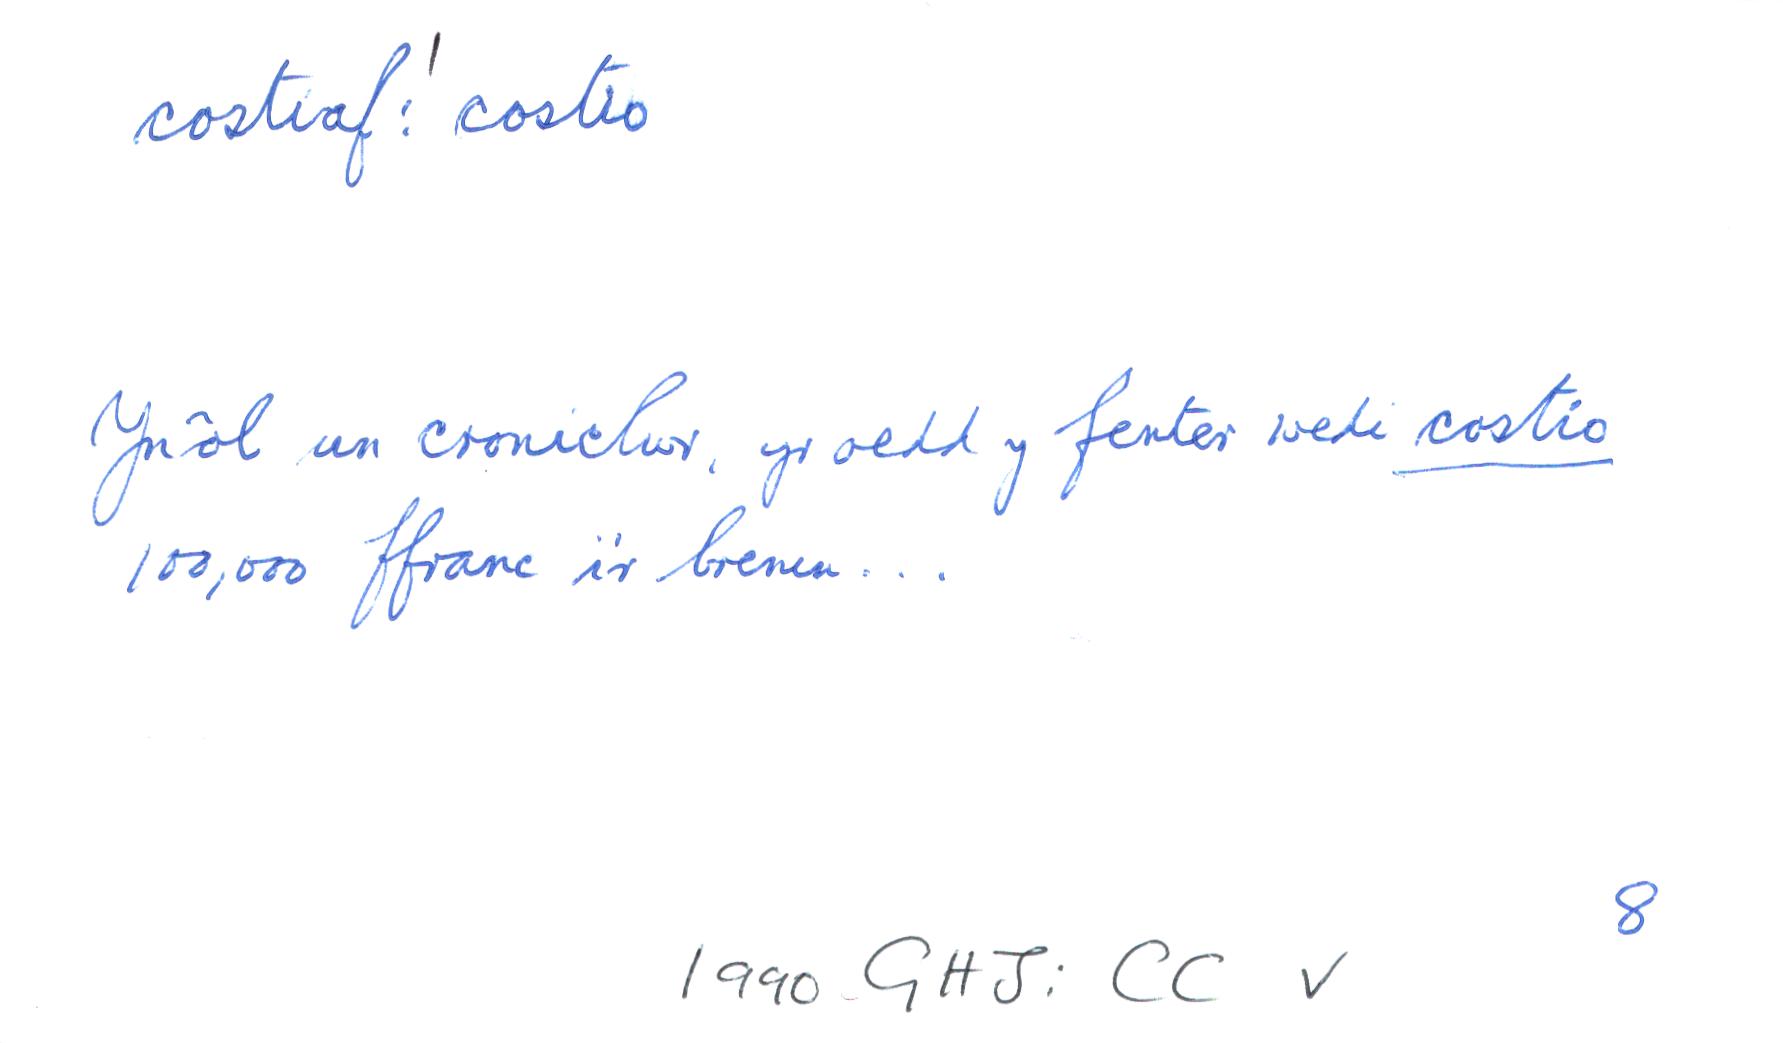 costiaf: costio
Yn ôl un croniclwr, yr oedd y fenter wedi costio
100,000 ffranc i'r brenin...
8
1990 GHJ: CC V